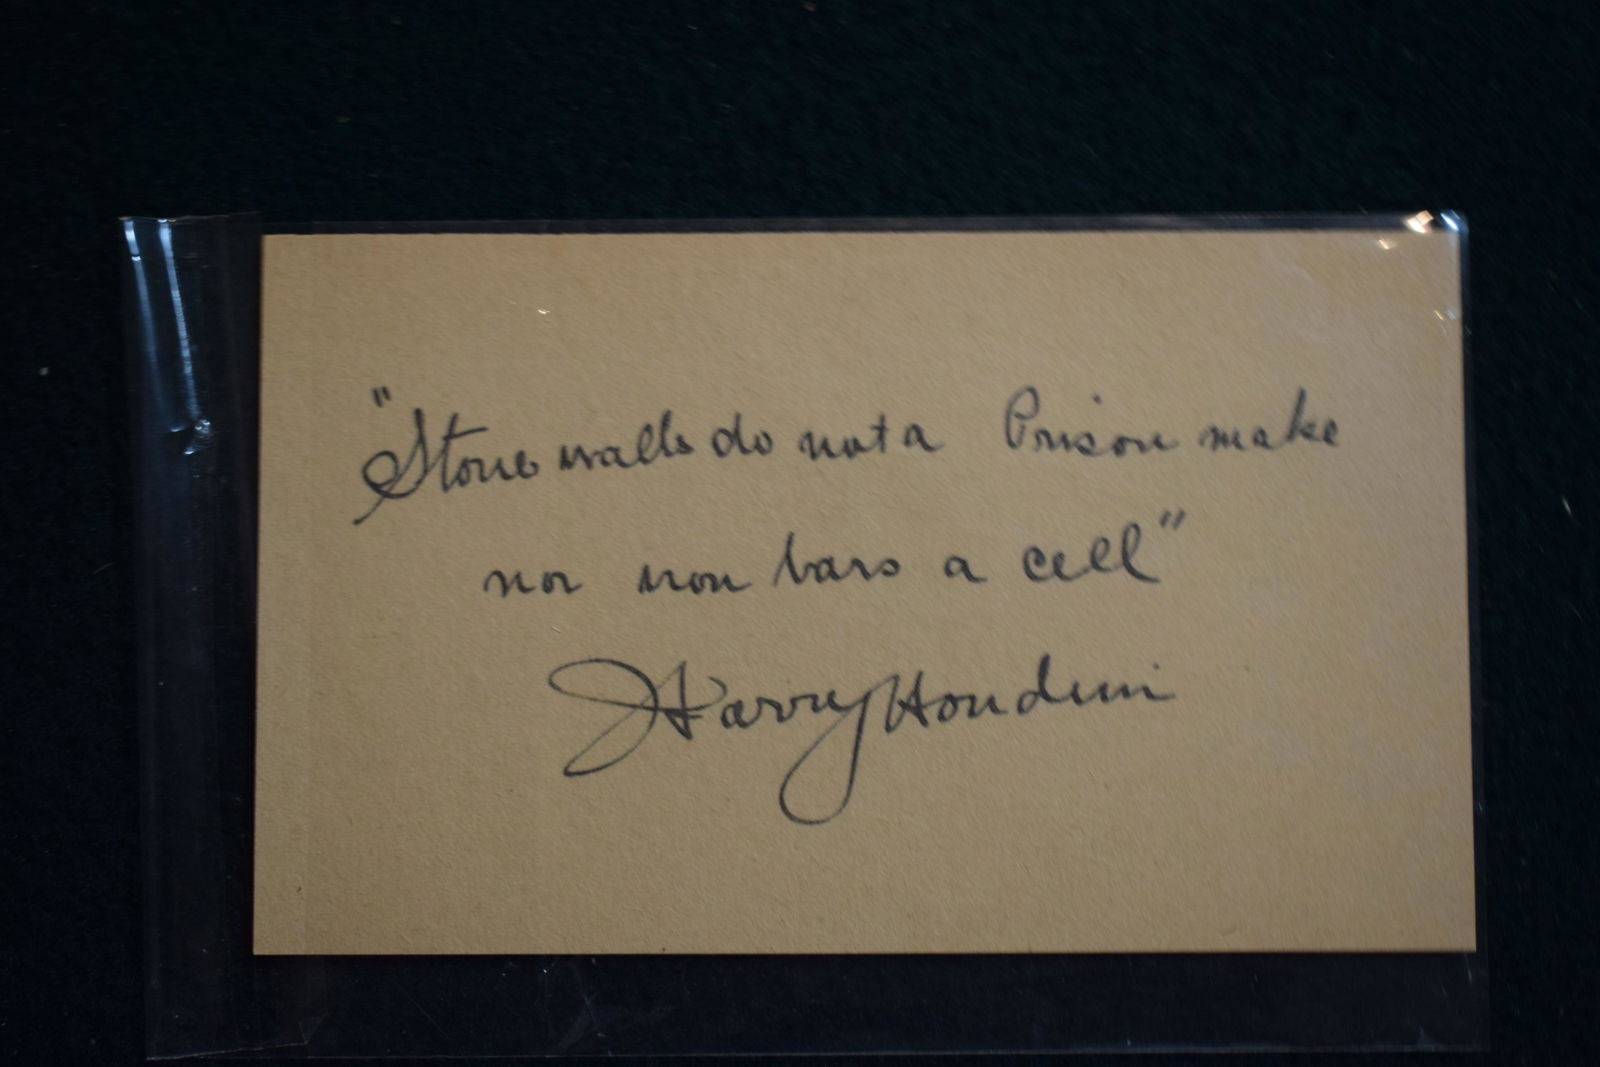 "Stone walls do not a Prison make
nor iron bars a cell"
Harry Houdini